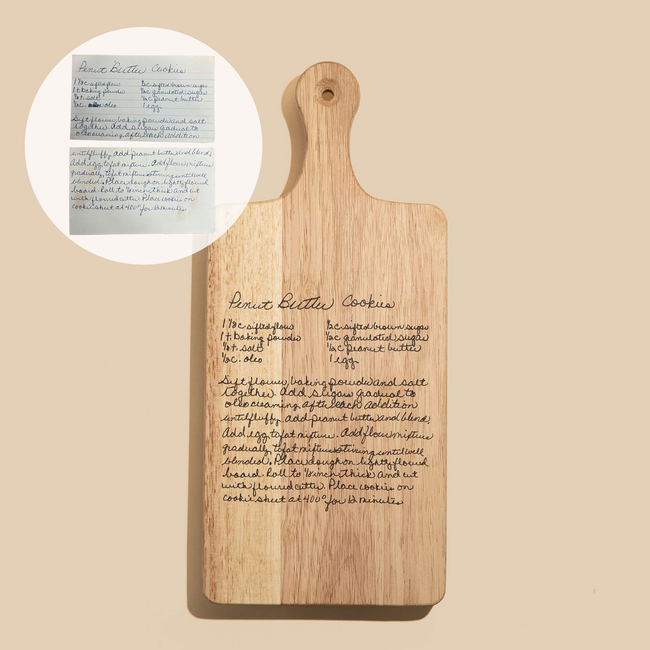 Penut Butter Cookies
sifted flow sifted brown sugar
1 t baking powder granulated sugar
salt peanut butter
oleo 1 egg
Sift flour, baking powder and salt
together. Add sugar gradual to
oleo creaming after each addition
until fluffy. add peanut butter and blend;
Add egg to fat mixture. Add flow mixture
gradually to fat mixture stirring until well
blended. Place dough on lightly floured
board. Roll to inch thick and cut
with floured cutter. Place cookies on
cookie sheet at 400° for 12 minutes
Penut Butter Cookies
sifted flow sifted brown sugar
1 t baking powder granulated sugar
salt peanut butter
oleo 1 egg
Sift flour, baking powder and salt
together. Add sugar gradual to
oleo creaming after each addition
until fluffy. add peanut butter and blend;
Add egg to fat mixture. Add flow mixture
gradually to fat mixture stirring until well
blended. Place dough on lightly floured
board. Roll to inch thick and cut
with floured cutter. Place cookies on
cookie sheet at 400° for 12 minutes